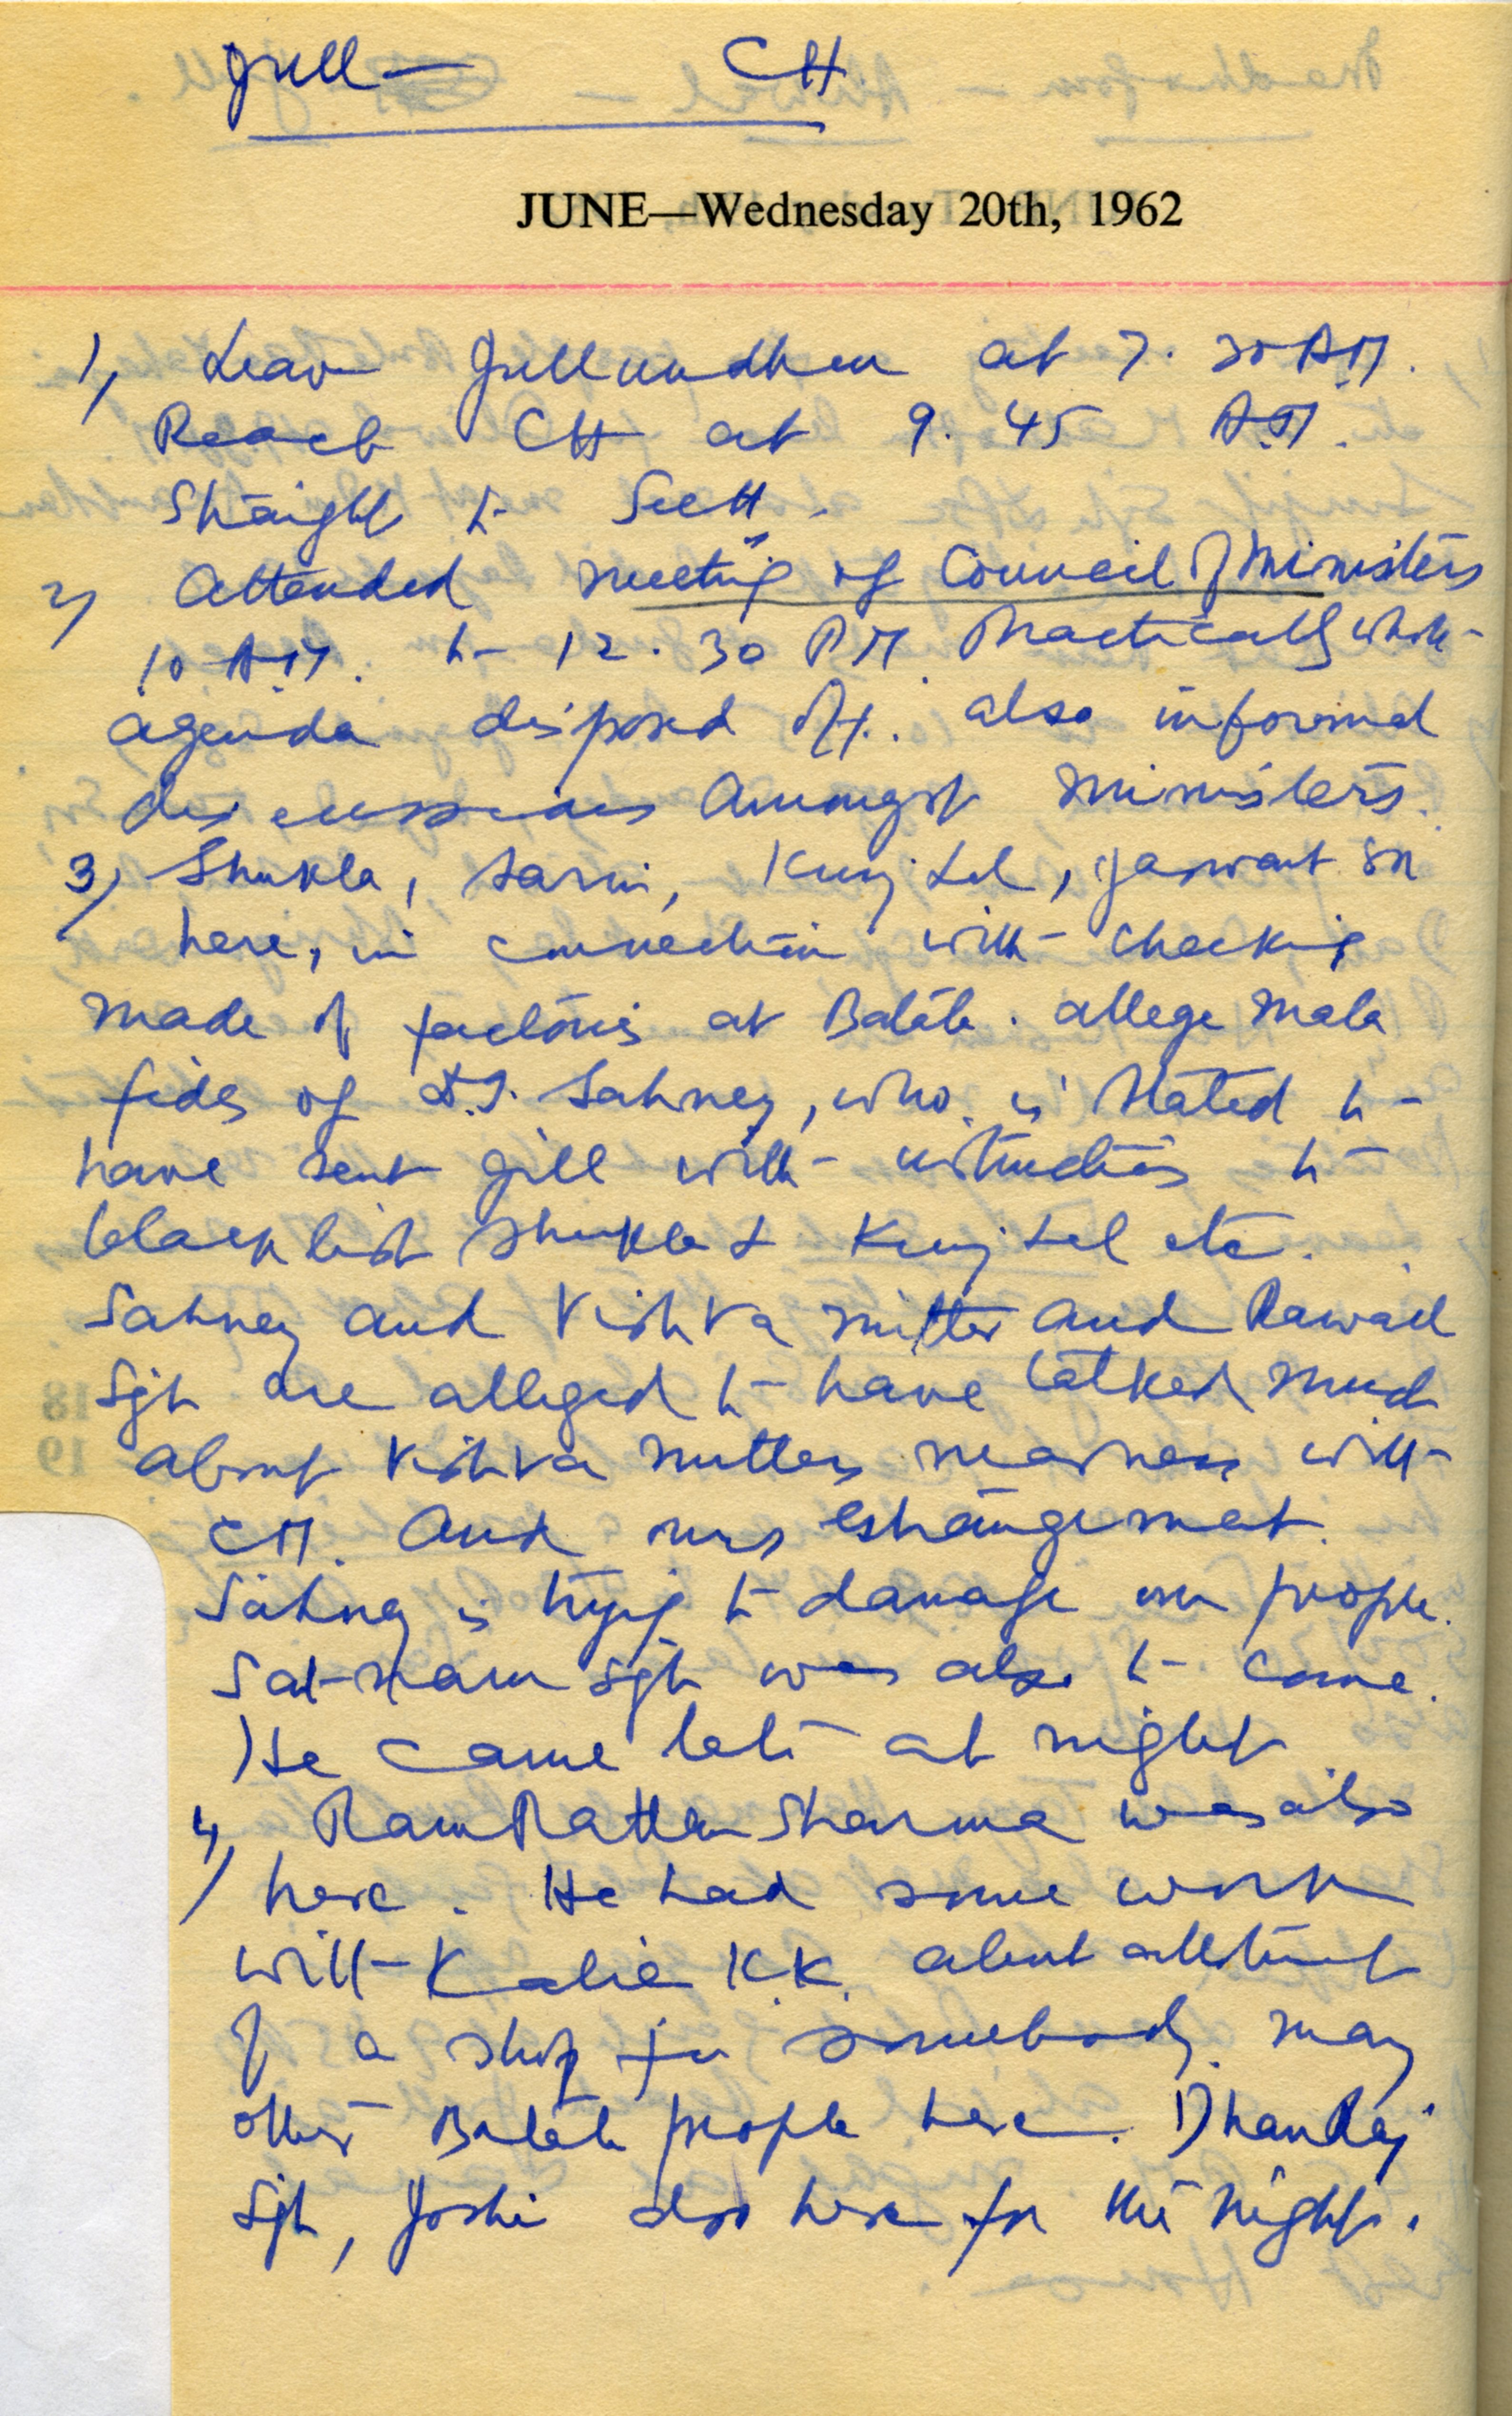 Jull — CH.
JUNE—Wednesday 20th, 1962
1) Leave Jullundhur at 7. 30 A.M.
Reach CH at 9. 45 A.M.
Straight to Sectt.
2) Attended meeting of Council of Ministers
10 A.M. to 12. 30 P.M. Practically whole
agenda disposed off. also informal
discussions amongst Ministers.
3) Shukla, Sarin, Kunj Lal, Jaswant
here, in connection with checking
made of factories at Batala. allege mala
fides of D.I. Sahney, who is stated to
have sent Gill with instructions to
black list Shukla & Kunj Lal etc.
Sahney and Vishva Mitter and
Sgh are alleged to have talked much
about Vishva Mitters nearness with
CM. and our estrangement.
Sahney is trying to damage our people.
Sat-nam Sgh was also to come.
He came late at night
4) Ram Rattan Sharma was also
here. He had some work
with Kalia K.K. about allotment
of a shop for somebody. many
other Batala people here. Dhan Raj
Sgh, Joshi also here for the night.